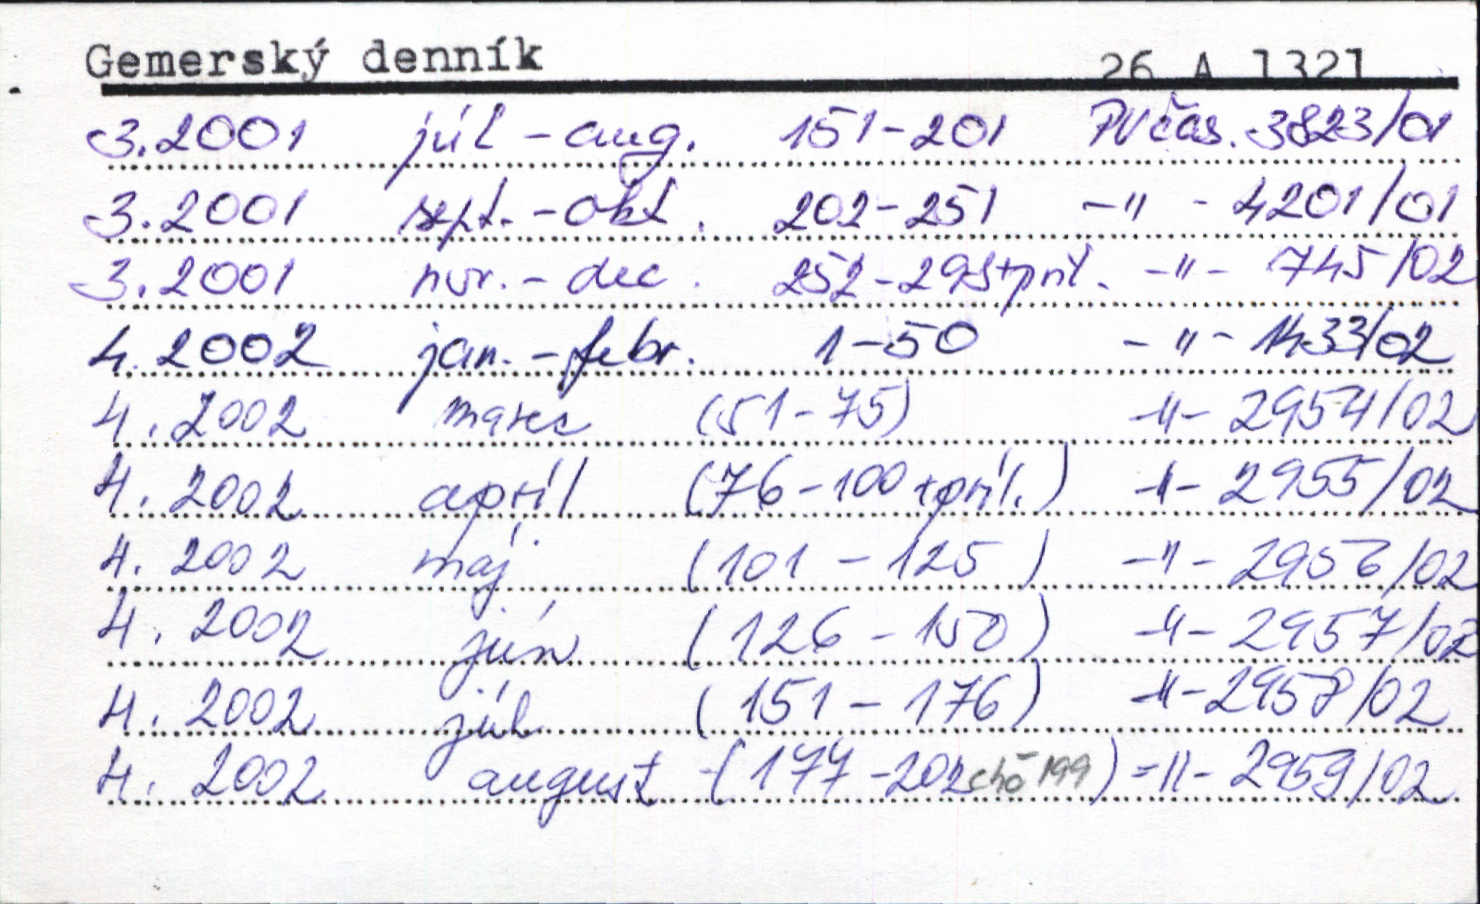 Gemerský denník 26 A 1321
3.2001 júl - aug. 151-201 PV čas. 3823/01
3.2001 sept. - okt. 202-251 -"- 4201/01
3.2001 nov. - dec. 252-298+príl. -"- 745/02
4.2002 jan. - febr. 1-50 -"- 1433/02
4.2002 marec (51-75) -"- 2954/02
4.2002 apríl (76-100+príl.) -"- 2955/02
4.2002 máj (101-125) -"- 2956/02
4.2002 jún (126-150) -"- 2957/02
4.2002 júl (151-176) -"- 2958/02
4.2002 august (177-202 chō 199) -"- 2959/02